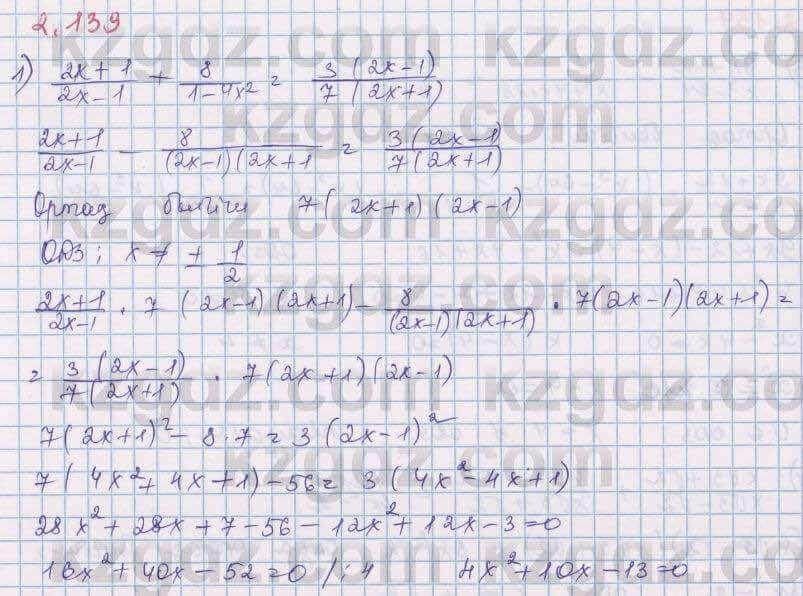 2.139
1) (2x+1)/(2x-1) + 8/(1-4x²) = 3(2x-1)/7(2x+1)
(2x+1)/(2x-1) - 8/(2x-1)(2x+1 = 3(2x-1)/7(2x+1)
Ортақ бөлгіш 7(2x+1)(2x-1)
ОДЗ; x ≠ ± 1/2
(2x+1)/(2x-1) · 7(2x-1)(2x+1) - 8/(2x-1)(2x+1) · 7(2x-1)(2x+1) =
= 3(2x-1)/7(2x+1) · 7(2x+1)(2x-1)
7(2x+1)² - 8·7 = 3(2x-1)²
7(4x²+4x+1)-56= 3(4x²-4x+1)
28x²+28x+7-56-12x²+12x-3=0
16x²+40x-52=0 /:4 4x²+10x-13=0
kzgdz.com